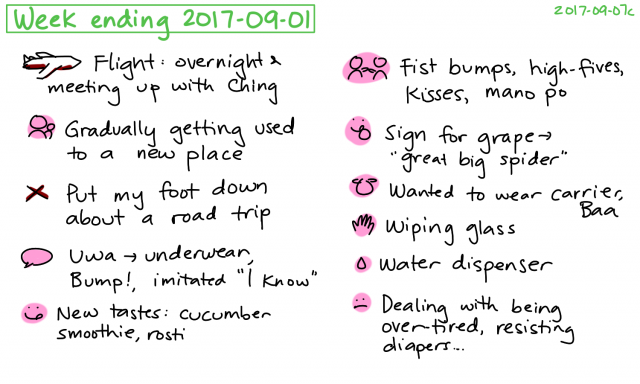 Week ending 2017-09-01
2017-09-07c
Flight: overnight &
meeting up with Ching
Gradually getting used
to a new place
Put my foot down
about a road trip
Uwa → underwear,
Bump!, imitated "I know"
New tastes: cucumber
smoothie, rosti
Fist bumps, high-fives,
kisses, mano po
Sign for grape →
"great big spider"
Wanted to wear carrier,
Baa
Wiping glass
Water dispenser
Dealing with being
over-tired, resisting
diapers...